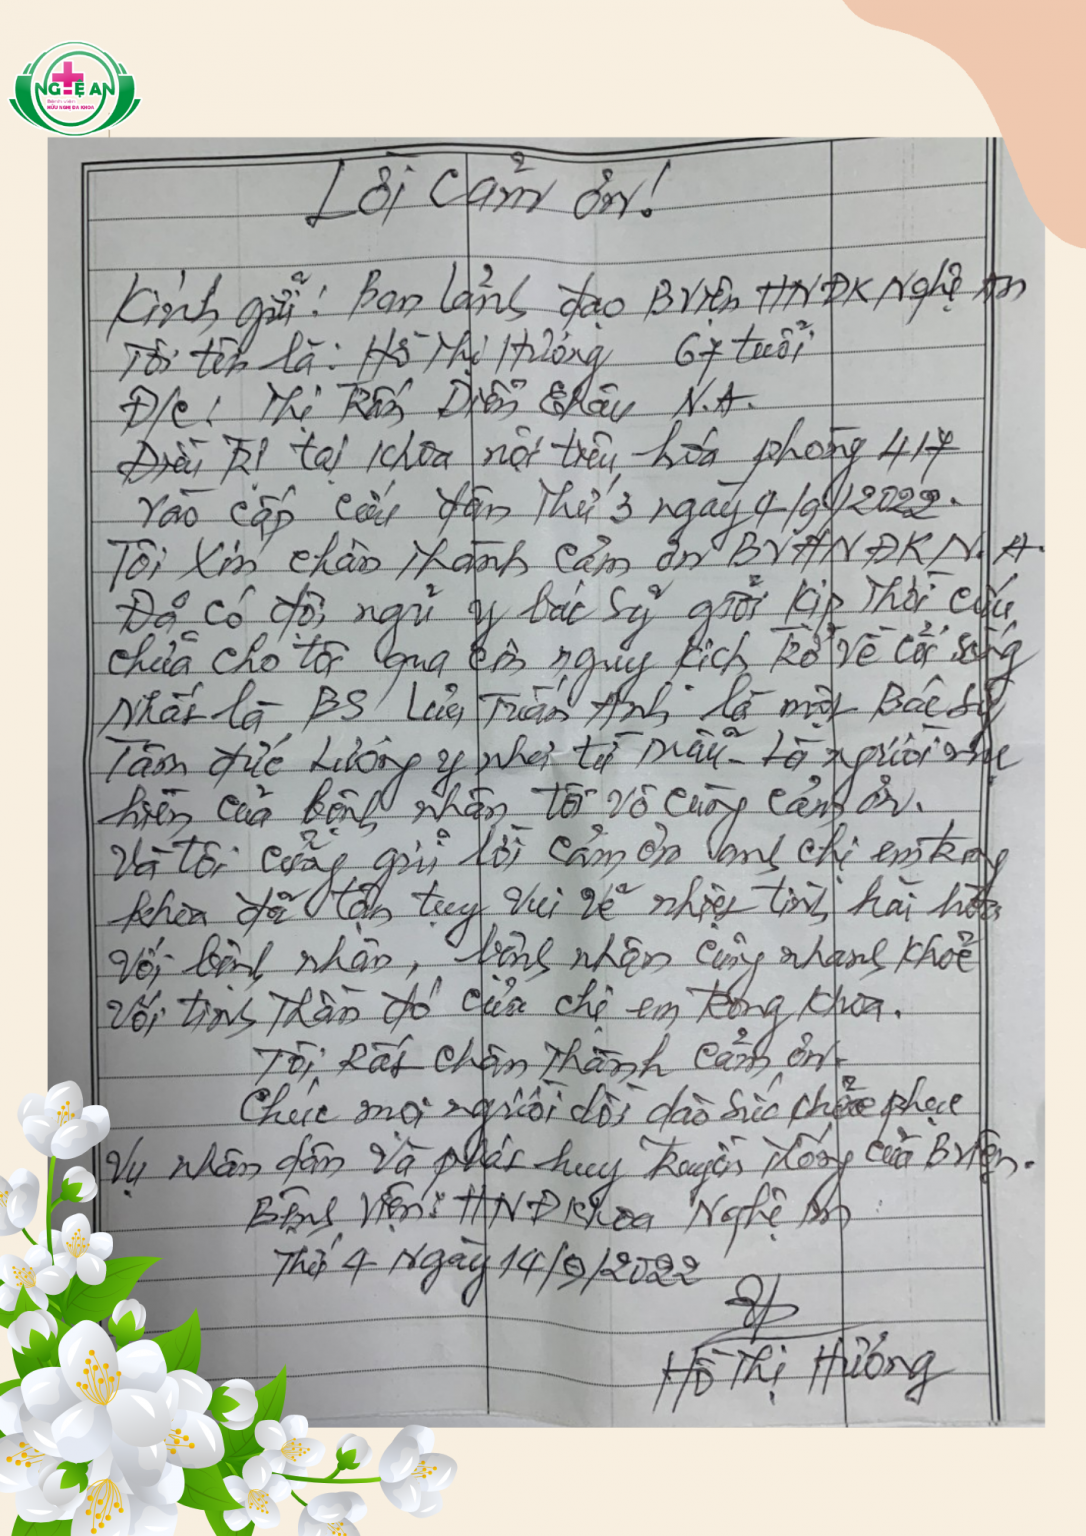 NGHỆ AN
Bệnh viện
HỮU NGHỊ ĐA KHOA
Lời cảm ơn!
Kính gửi! Ban lảnh đạo BViện HNĐK Nghệ An
Tôi tên là: Hồ Thị Hướng 67 tuổi
Đ/c! Thị Trấn Diễn Châu N.A.
Điều Trị tại khoa nội tiêu hóa phòng 417
Vào cấp cứu đêm thứ 3 ngày 4/9/2022.
Tôi Xin chân thành cảm ơn BVHNĐK N.A.
Đả có đội ngủ y bác sỹ giỏi kịp Thời cứu
chửa cho tôi qua cơn nguy kịch trở về cỏi sống
Nhất là BS Lưu Tuấn Anh là một Bác sỹ
Tâm đức Lương y như từ mẫu. Là người mẹ
hiền của bệnh nhân tôi vô cùng cảm ơn.
Và tôi cũng gửi lời cảm ơn anh chị em trong
khoa đã tận tụy vui vẽ nhiệt tình hài hòa
Với bệnh nhân, bệnh nhân cũng nhanh khoẻ
Với tinh thần đó của chị em trong khoa.
Tôi Rất chân thành cảm ơn.
Chúc mọi người dồi dào sức khỏe phục
vụ nhân dân và phát huy truyền thống của BViện.
Bệnh viện: HNĐKhoa Nghệ An
Thứ 4 Ngày 14/9/2022
Hồ Thị Hướng